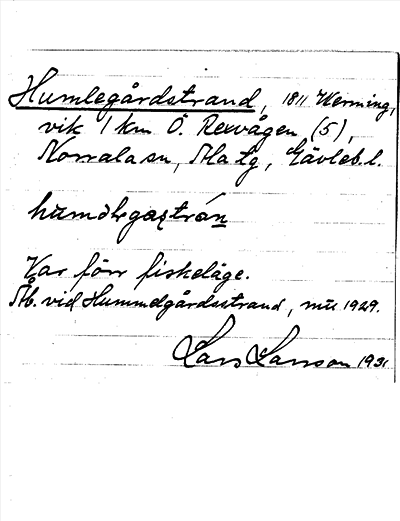 Humlegårdstrand, 1811 Herming,
vik 1 km Ö. Rexvågen (5),
Norrala sn, Ala tg, Gävleb. l.
humɘlegaʂtrán
Var förr fiskeläge.
Åb. vid Hummelgårdsstrand, mtr 1929.
Lars Larsson 1931